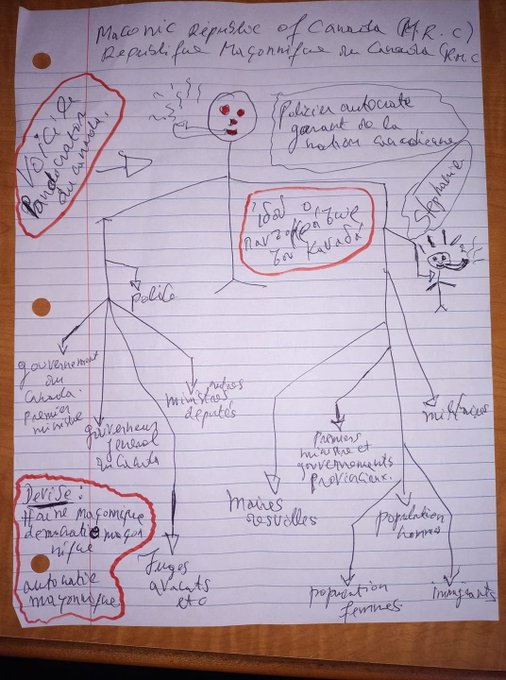 Maconic République of Canada (M.R.C)
République Maçonnique du Canada (R.M.C
Voici le
Pantocrator
du Canada.
Policier autocrate
garant de la
nation canadienne
Stephanie
ἰδού ὁ
παντοκράτωρ
τοῦ Καναδά
police
gouvernement
du
Canada.
premier
ministre
gouverneur
general
du Canada
autres
ministres
députés
Juges
avocats
etc
militaires
Premiers
ministre et
gouvernements
provinciaux.
Maires
des villes
population
hommes
population
femmes
immigrants
Devise:
Haine maçonnique
democratie maçon
nique
autocratie
maçonnique